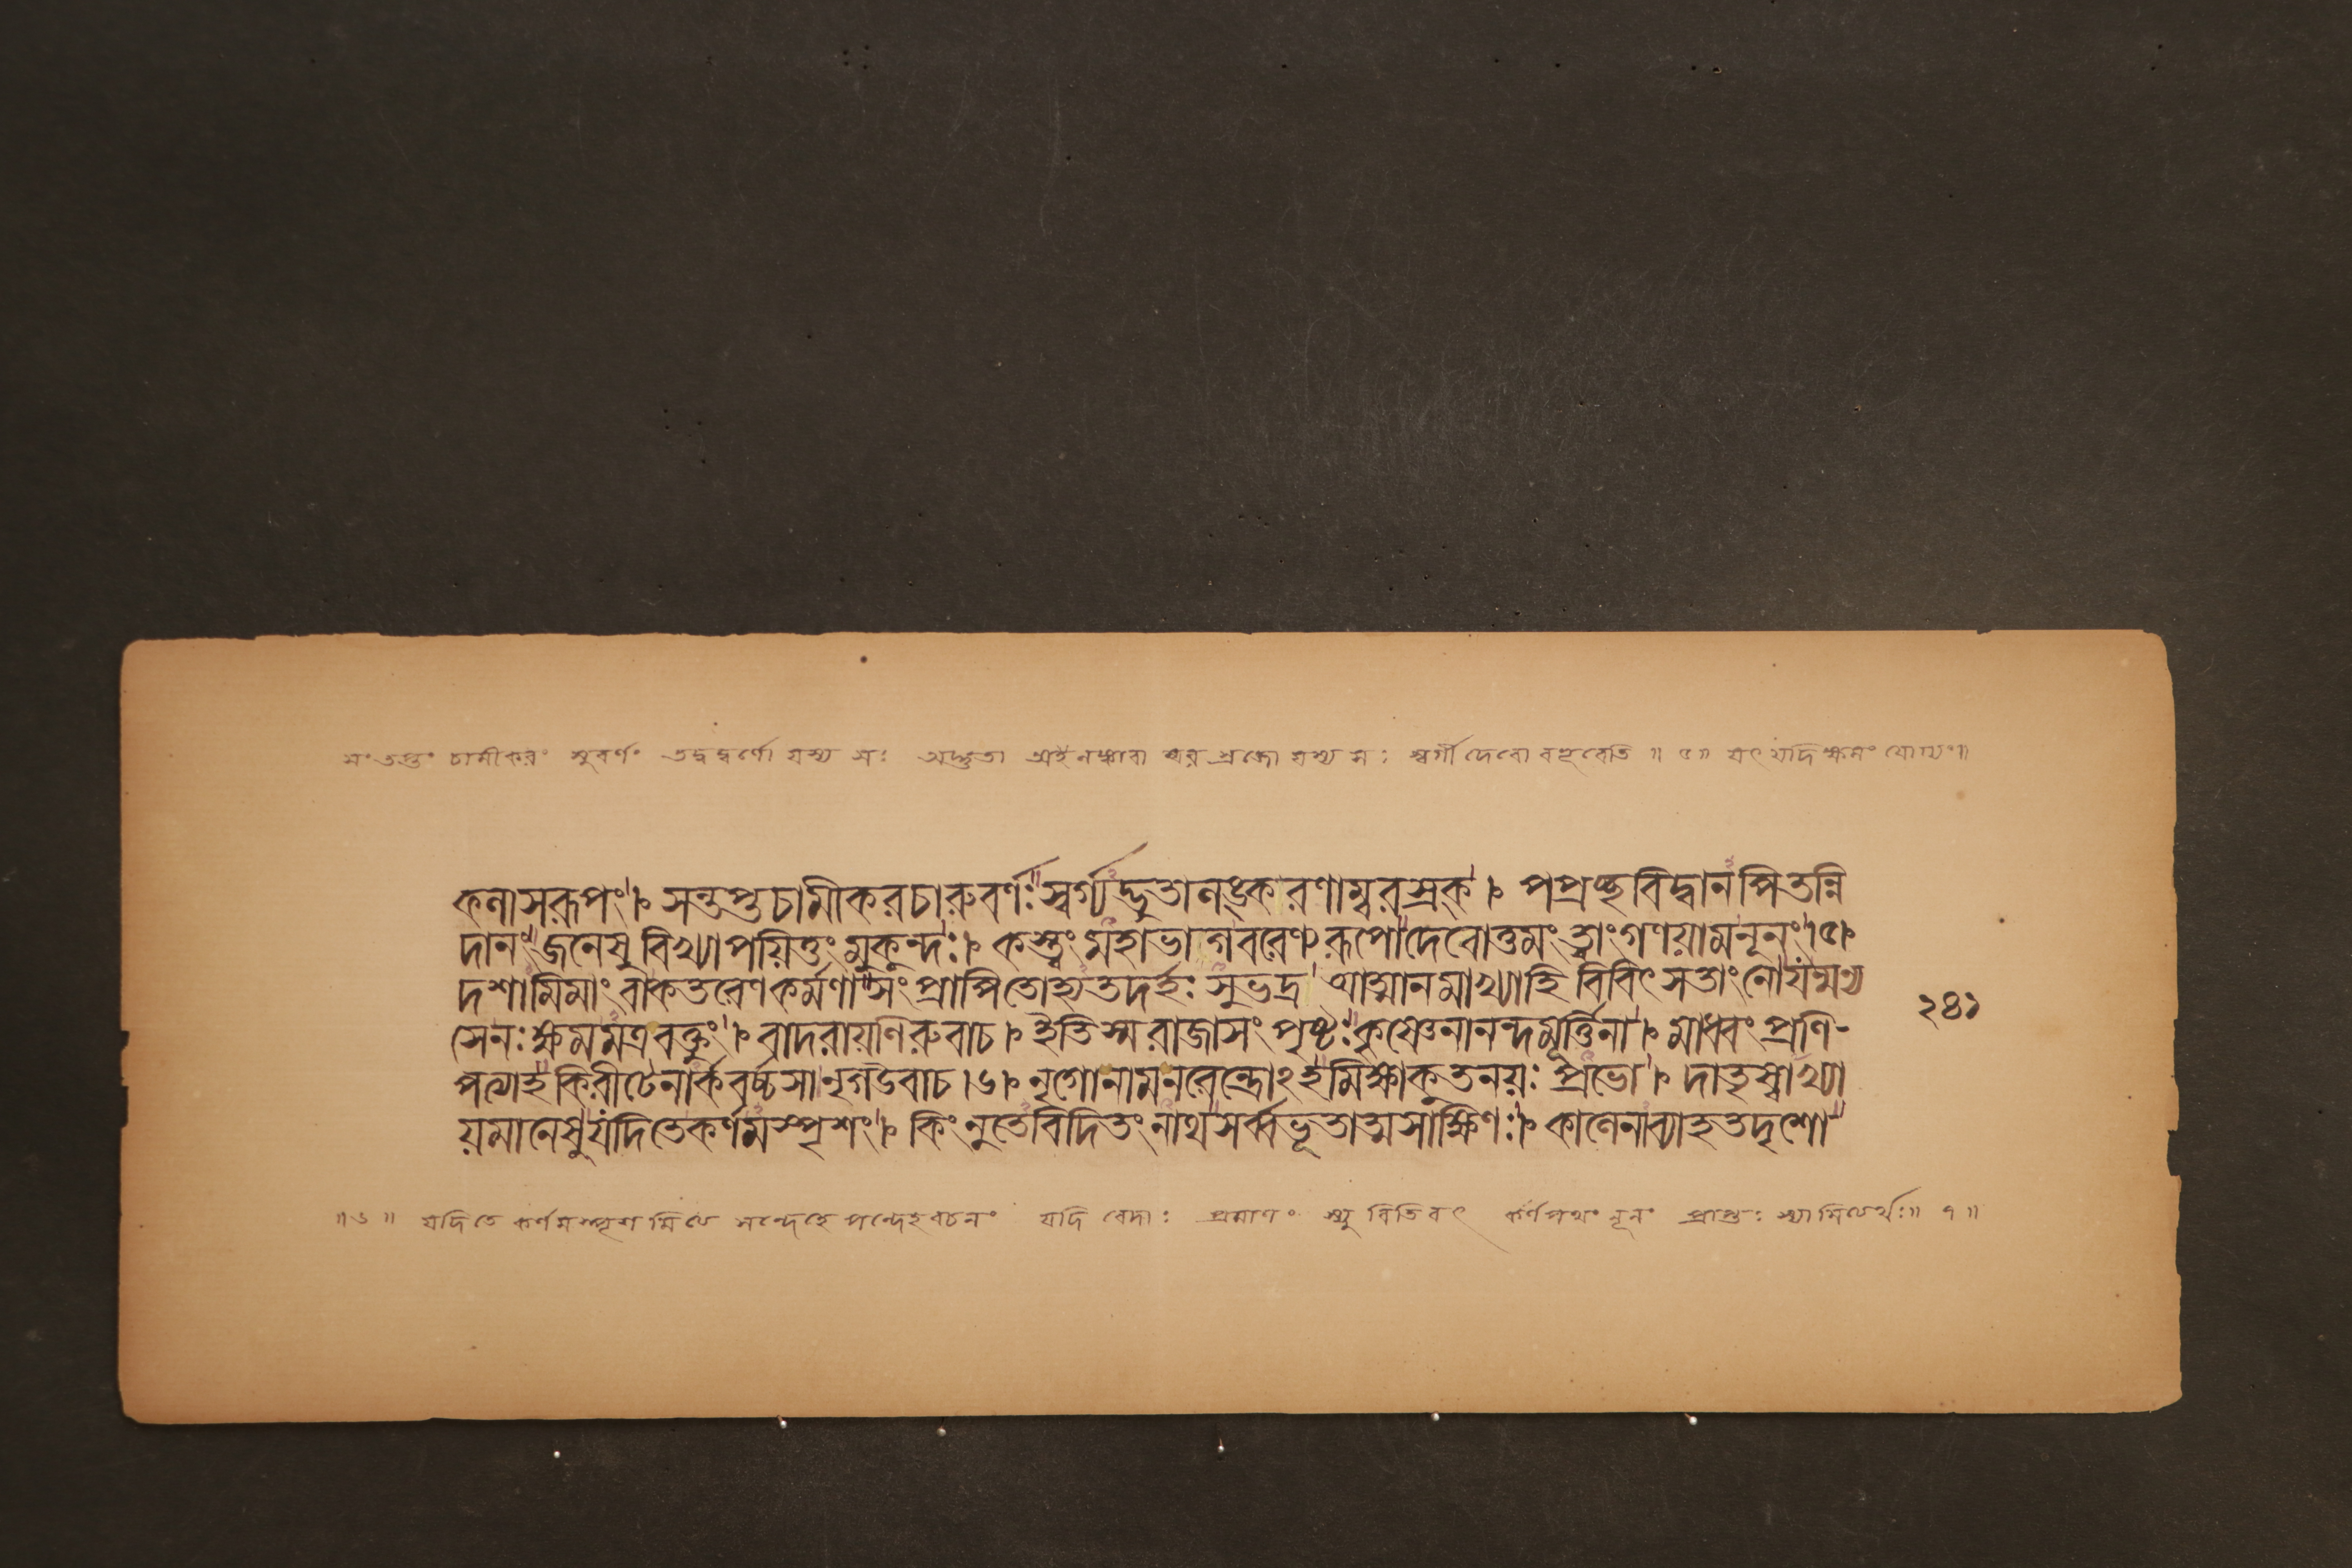 সংতপ্তং চামীকরং সুবর্ণং তদ্বদ্বর্ণো যস্য সঃ অদ্ভুতা অলঙ্কারা স্রজো যস্য সঃ স্বর্গী দেবো বহুবেতি ॥ ৫॥ যৎ যদি ক্ষমং যোগ্যং॥
কলাসরূপং। সন্তপ্তচামীকরচারুবর্ণঃ স্বর্গ্যদ্ভুতালঙ্করণাম্বরস্রক্। পপ্রচ্ছ বিদ্বানপি তন্নি
দানং জনেষু বিখ্যাপয়িতুং মুকুন্দঃ। কস্ত্বং মহাভাগ বরেণ্যরূপো দেবোত্তমং ত্বাং গণয়াম নূনং।৫।
দশামিমাং বা কতরেণ কর্মণা সংপ্রাপিতোহ্যতদর্হঃ সুভদ্র আত্মানমাখ্যাহি বিবিৎসতাং নো যন্মন্য
সে নঃ ক্ষমমত্র বক্তুং। বাদরায়ণিরুবাচ। ইতি স্ম রাজা সংপৃষ্টঃ কৃষ্ণেনানন্দমূর্ত্তিনা। মাধবং প্রাণি-
পত্যাহ কিরীটেনার্কবর্চ্চসা নৃগউবাচ।৬। নৃগো নাম নরেন্দ্রোঽহমিক্ষ্বাকুতনয়ঃ প্রভো। দাতৃস্বাখ্যা
য়মানেষু যদি তে কর্ণমস্পৃশং। কিং নু তে বিদিতং নাথ সর্ব্বভূতাত্মসাক্ষিণঃ। কালেনাব্যাহতদৃশো
২৪১
॥৬॥ যদি তে কর্ণমস্পৃশমিতি সন্দেহে সন্দেহবচনং যদি বেদাঃ প্রমাণং স্যুরিতিবৎ কর্ণপথং নূনং প্রাপ্তঃ স্যামিত্যর্থঃ॥ ৭॥